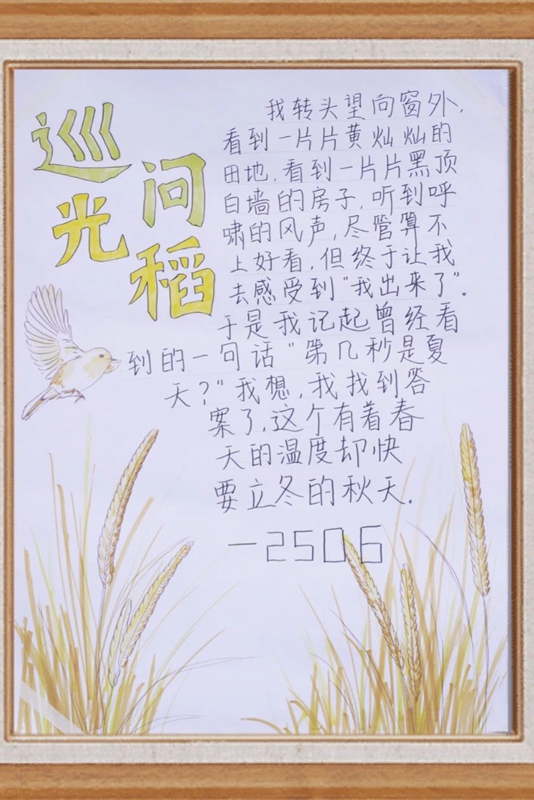 巡光
问稻
我转头望向窗外，
看到一片片黄灿灿的
田地，看到一片片黑顶
白墙的房子，听到呼
啸的风声，尽管算不
上好看，但终于让我
去感受到“我出来了”。
于是我记起曾经看
到的一句话“第几秒是夏
天？”我想，我找到答
案了，这个有着春
天的温度却快
要立冬的秋天．
—2506